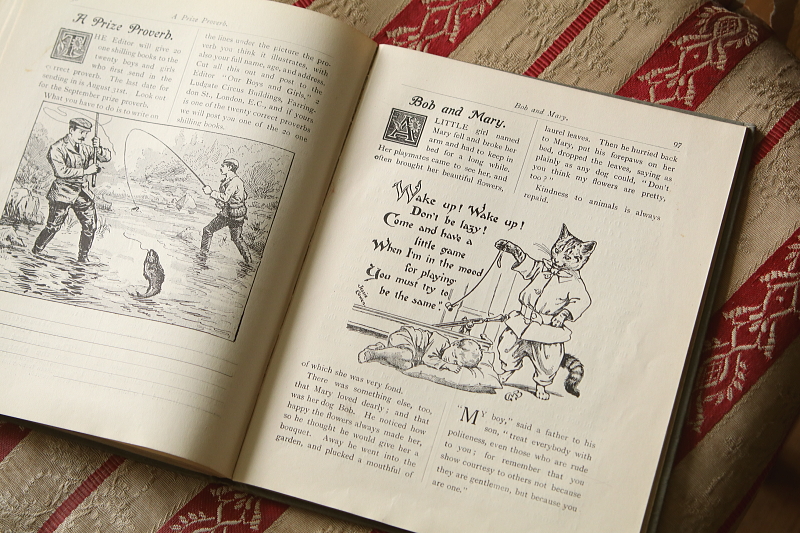 A Prize Proverb.
A Prize Proverb.
THE Editor will give 20
one shilling books to the
twenty boys and girls
who first send in the
correct proverb. The last date for
sending in is August 31st. Look out
for the September prize proverb.
What you have to do is to write on
the lines under the picture the pro-
verb you think it illustrates, with
also your full name, age, and address.
Cut all this out and post to the
Editor "Our Boys and Girls," 2
Ludgate Circus Buildings, Farring-
don St., London, E.C., and if yours
is one of the twenty correct proverbs
we will post you one of the 20 one
shilling books.
Bob and Mary.
97
Bob and Mary.
A LITTLE girl named
Mary fell and broke her
arm and had to keep in
bed for a long while.
Her playmates came to see her, and
often brought her beautiful flowers,
laurel leaves. Then he hurried back
to Mary, put his forepaws on her
bed, dropped the leaves, saying as
plainly as any dog could, "Don't
you think my flowers are pretty,
too?"
Kindness to animals is always
repaid.
Wake up! Wake up!
Don't be lazy!
Come and have a
little game
When I'm in the mood
for playing
You must try to
be the same"
of which she was very fond.
There was something else, too,
that Mary loved dearly; and that
was her dog Bob. He noticed how
happy the flowers always made her,
so he thought he would give her a
bouquet. Away he went into the
garden, and plucked a mouthful of
"MY boy," said a father to his
son, "treat everybody with
politeness, even those who are rude
to you; for remember that you
show courtesy to others not because
they are gentlemen, but because you
are one."